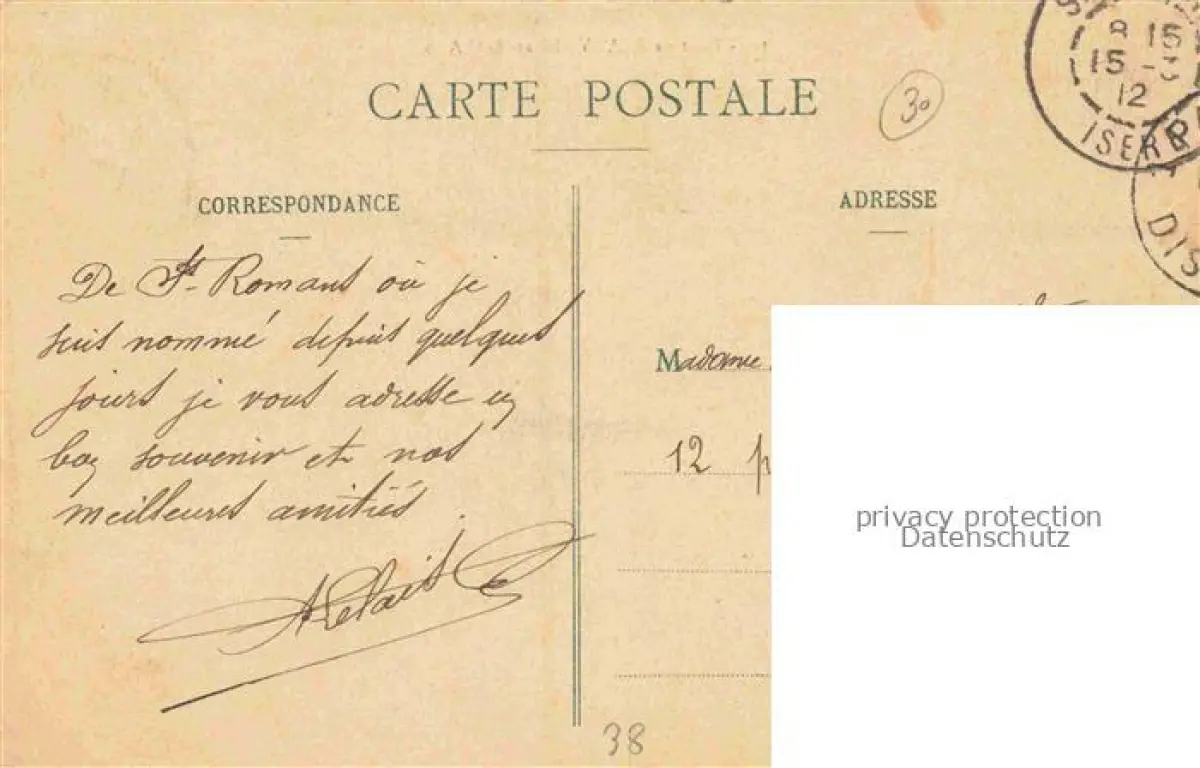 CARTE POSTALE
30
8 15
15 -3
12
ISERE
DIS
CORRESPONDANCE
ADRESSE
De St. Romans où je
suis nommé depuis quelques
jours je vous adresse un
bon souvenir et nos
meilleures amitiés.
Madame
12
38
privacy protection
Datenschutz